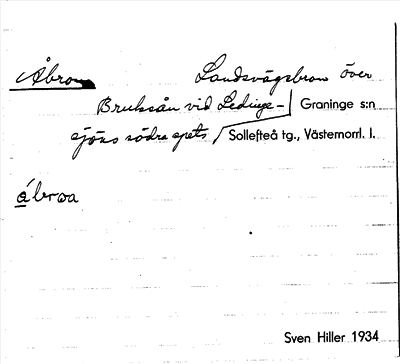 Åbron Landsvägsbron över
Bruksån vid Ledinge- Graninge s:n
sjöns södra spets Sollefteå tg., Västernorrl. l.
ábroa
Sven Hiller 1934